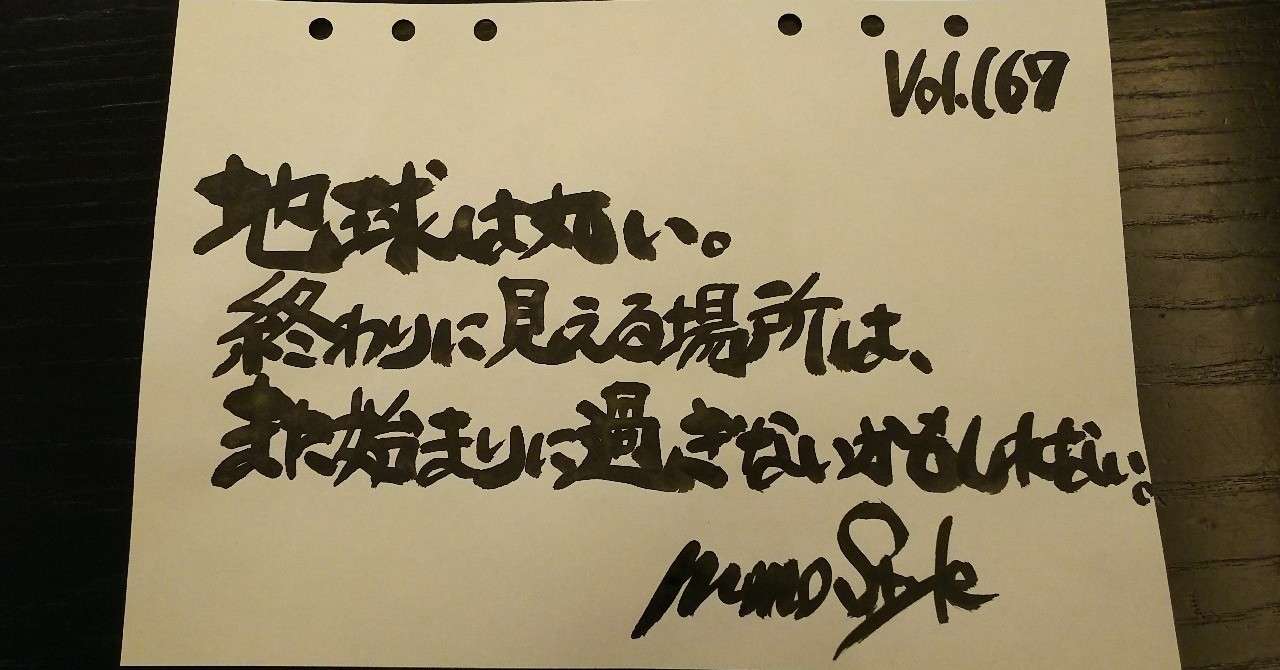 Vol.167
地球は丸い。
終わりに見える場所は、
また始まりに過ぎないかもしれない。
Style